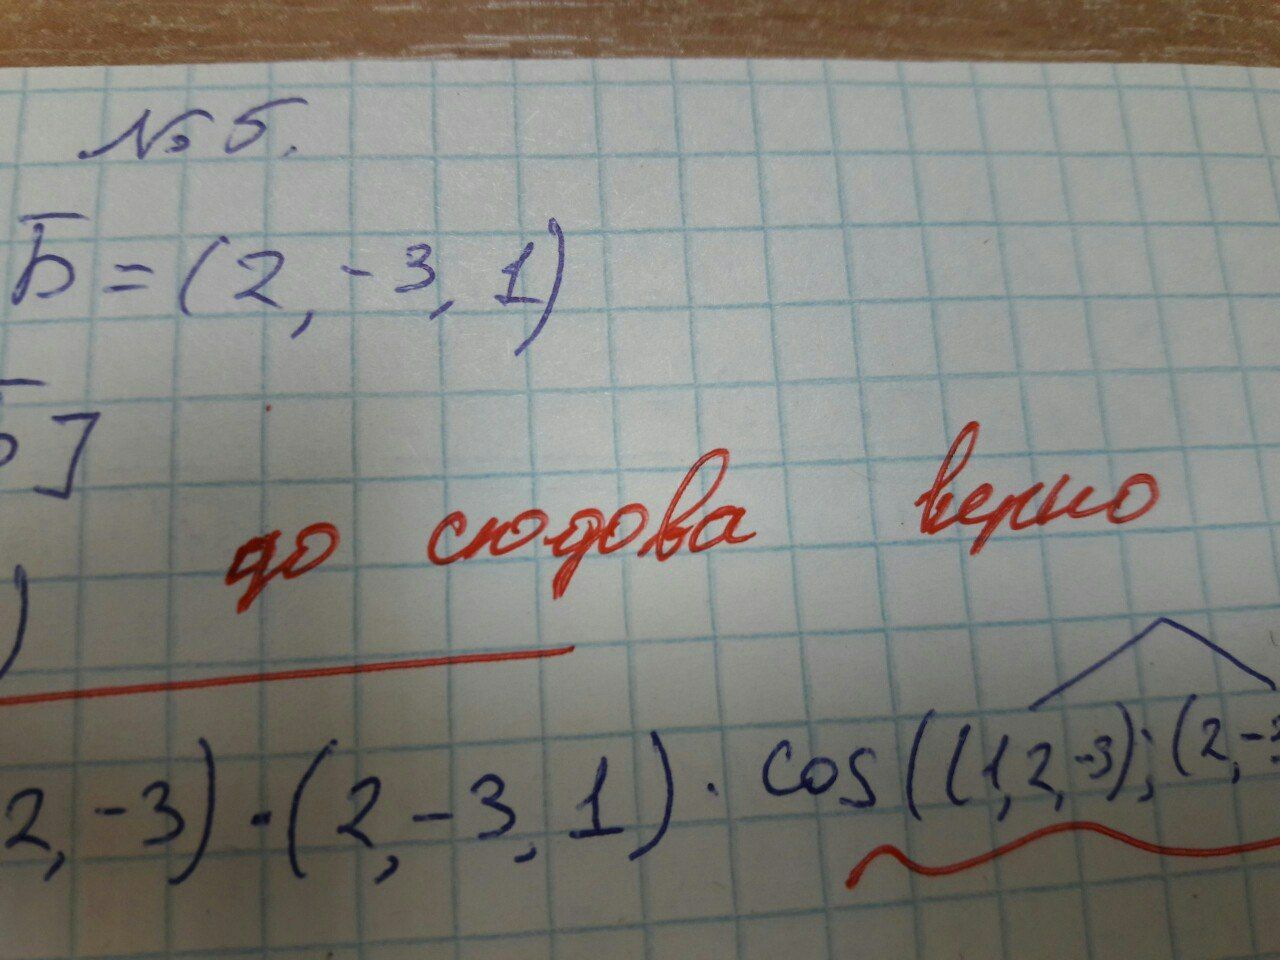 № 5.
b̅ = (2, -3, 1)
]
до сюдова верно
)
2, -3) · (2, -3, 1) · cos((1, 2, -3); (2, -3